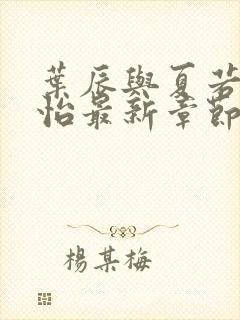 葉辰與夏若
怡最新章節
楊某梅